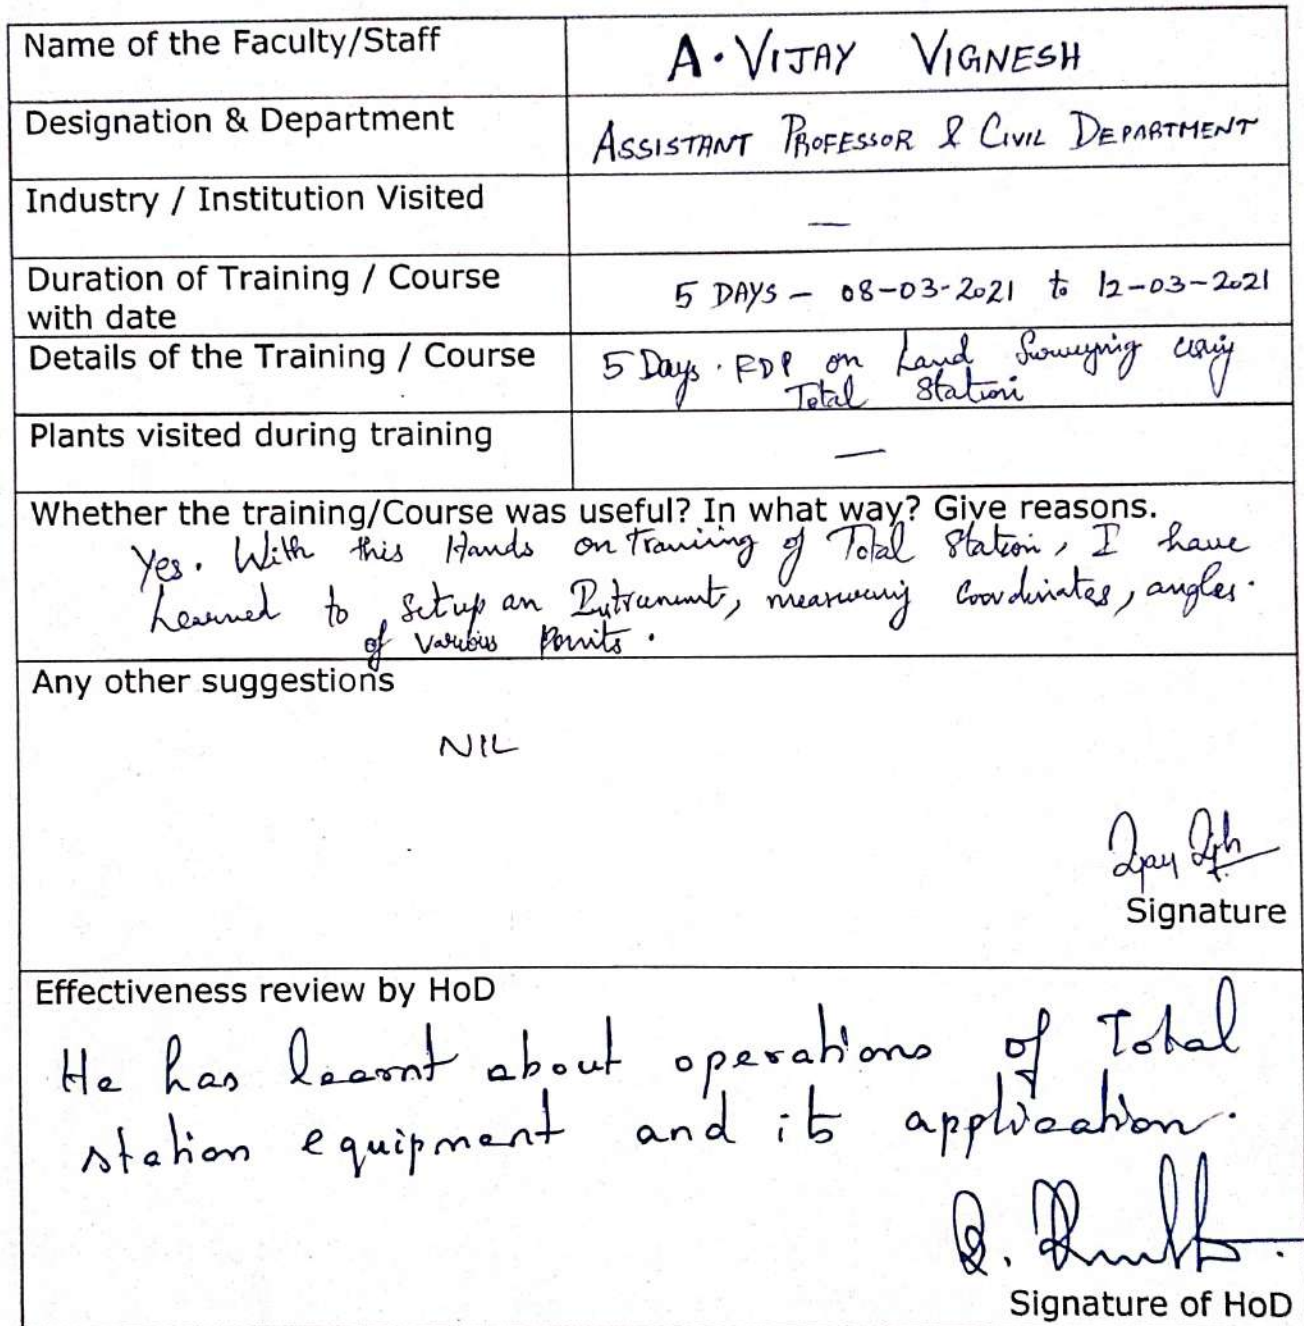 Name of the Faculty/Staff
A. VIJAY VIGNESH
Designation & Department
ASSISTANT PROFESSOR & CIVIL DEPARTMENT
Industry / Institution Visited
—
Duration of Training / Course
with date
5 DAYS – 08-03-2021 to 12-03-2021
Details of the Training / Course
5 Days. FDP on Land Surveying using
Total Station
Plants visited during training
—
Whether the training/Course was useful? In what way? Give reasons.
Yes. With this Hands on Training of Total Station, I have
Learned to Setup an Intrument, measuring Coordinates, angles.
of various Points.
Any other suggestions
NIL
Signature
Effectiveness review by HoD
He has learnt about operations of Total
station equipment and its application.
Signature of HoD